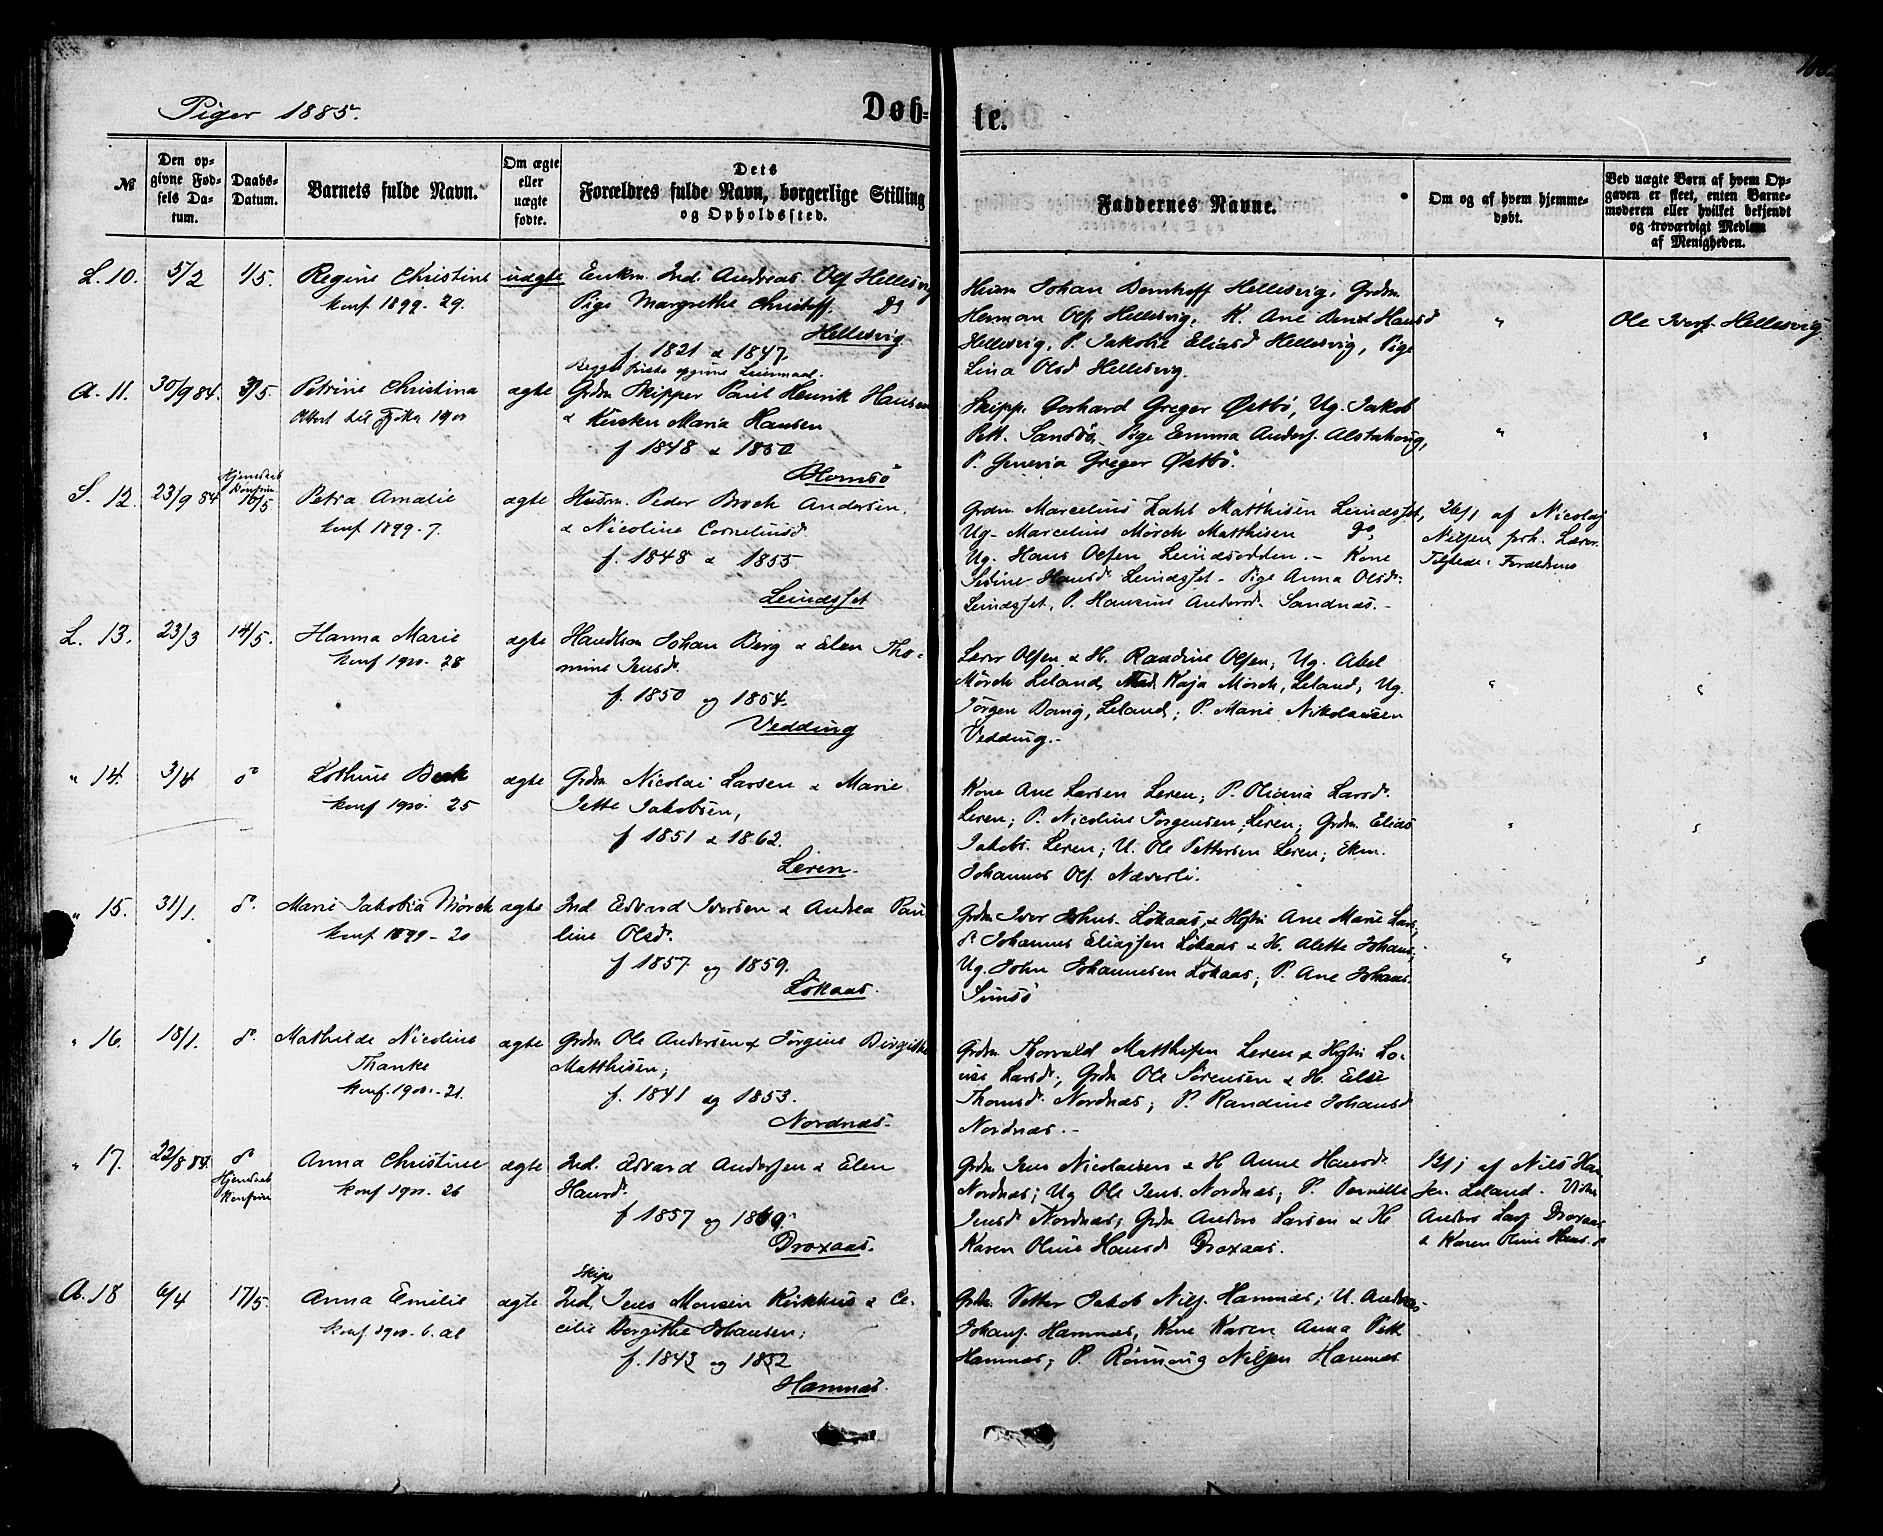 Piger 1885.
Døb-
te.
№
Den op-
givne Fød-
sels Da-
tum.
Daabs-
Datum.
Barnets fulde Navn.
Om ægte
eller
uægte
fødte.
Dets
Forældres fulde Navn, borgerlige Stilling
og Opholdssted.
Faddernes Navne.
Om og af hvem hjemme-
døbt.
Ved uægte Børn af hvem Op-
gaven er skeet, enten Barne-
moderen eller hvilket bekjendt
og troværdigt Medlem
af Menigheden.
L. 10. 5/2 1/5. Regine Christine uægte Enkm. Ind. Andreas Olf Hellesvig
konf 1899. 29. Pige Margrethe Christoff. do
Hellesvig
f. 1821 & 1847.
Begges første opgivne Leiermaal.
Huusm Johan Bernhoff Hellesvig, Grdm
Herman Olf. Hellesvig, K. Ane Hansd
Hellesvig, P. Jakobie Eliasd Hellesvig, Pige
Lina Olsd Hellesvig.
"
Ole Iverf. Hellesvig
A. 11. 30/9 84. 3/5. Petrine Christina ægte Grdm Skipper Paul Henrik Hansen
1900 & Kirsten Maria Hansen
f 1848 & 1850
Blomsö
Skipp. Gerhard Greger Østbö, Ug. Jakob
Pett. Sandsö, Pige Emma Anders. Alstahoug,
P. Greger Østbö.
" "
S. 12. 23/9 84 10/5 Petra Amalie ægte Husm. Peder Brock Andersen,
konf 1899. 7. & Nicoline Corneliusd.
f. 1848 & 1855
Leinesset
Grdm Marcelius Zahl Matthisen Leinesset,
Ug. Marcelius Mørch Matthisen do
Ug. Hans Olsen Leinesodden. - Kone
Sedine Hansd. Leinesset - Pige Anna Olsd.
Leinesset, P. Hansine Andersd. Sandnæs. -
26/1 af Nicolaj
Nilsen forh. Lærer.
Tilstede: Forældrene
L. 13. 23/3 14/5. Hanna Marie ægte Handlsm Johan Berg & Elen Tho-
konf 1900. 28 mine Jensd.
f. 1850 og 1854.
Vedding
Lærer Olsen & H. Randine Olsen, Ug. Abel
Mørch Leland, Mad. Kaja Mørch, Leland, Ug.
Jörgen Dang, Leland; P. Marie Nikolaisen
Vedding. -
" "
" 14. 3/4 do Lothine Beck ægte Grdm Nicolai Larsen & Marie
konf 1900. 25 Jette Jakobsen,
f 1851 & 1862.
Leren.
Kone Ane Larsen Leren; P. Oliana Larsd.
Leren; P. Nicoline Jörgensen, Leren; Grdm. Elias
Jakobs. Leren; U. Ole Pettersen Leren; Ekm.
Johannes Olf. Næverli.
" "
" 15. 31/1. do Marie Jakobia Mörch ægte Ind Edvard Iversen & Andrea Pau-
konf 1899 - 20 line Olsd.
f 1857 og 1859.
Lökaas.
Grdm Iver Johns. Lökaas, & Hstr Ane Marie Lars,
do Johannes Eliassen Lökaas & H. Alette Johans;
Ug. John Johannesen Lökaas; P. Ane Johans.
Simsö
" "
" 16. 18/1. do Mathilde Nicoline ægte Grdm Ole Andersen & Jörgine Birgitte
Thanke Matthisen;
konf. 1900. - 21. f. 1841 og 1853.
Nordnæs.
Grdm Thorvald Matthisen Leren & Hstr Lo-
uise Larsd.; Grdm Ole Sörensen & H. Else
Thomsd. Nordnæs; P. Randine Johansd
Nordnæs. -
" 17. 22/8 84. do Anna Christine ægte Ind. Edvard Andersen & Elen
konf 1900. 26 Hansd.
f 1857 og 1860.
Droxaas.
Grdm Jens Nicolaisen & H Anne Hansd.
Nordnæs; Ug Ole Jens. Nordnæs; P. Pernille
Jensd Nordnæs; Grdm Anders Larsen & H.
Karen Oline Hansd Droxaas.
af Nils Han-
sen Leland.
Anders Larf Droxaas
& Karen Oline Hans. do
A. 18 6/4 17/5. Anna Emilie ægte Skips
konf 1900. 6. Ind. Jens Monsen Kirkhus & Ce-
cilie Bergithe Johansen;
f. 1843 og 1852
Hamnæs.
Grdm. Petter Jakob Nils. Hamnæs; U. Andreas
Johans. Hamnæs, Kone Karen Anna Pett
Hamnæs; P. Rönnaug Nilsen Hamnæs.